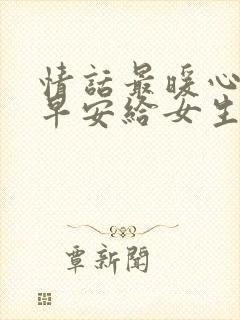 情話最暖心
早安給女生
覃新聞